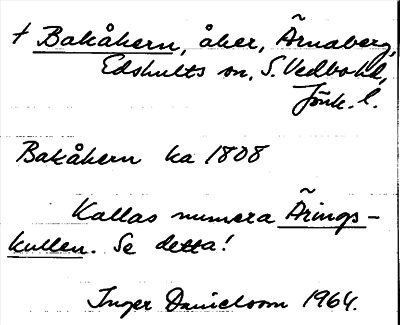 † Bakåkern, åker, Ärnaberg,
Edshults sn, S. Vedbo hd,
Jönk. l.
Bakåkern ka 1808
Kallas numera Ärings-
kullen. Se detta!
Inger Danielsson 1964.